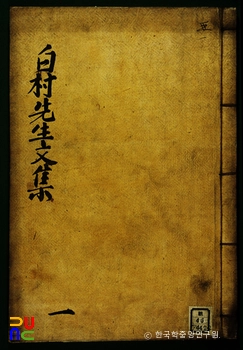 白村先生文集
一
五一
© 한국학중앙연구원